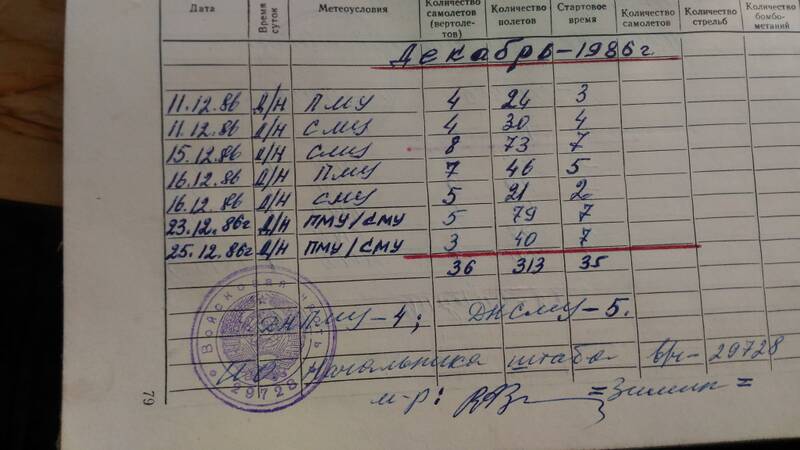 Дата Время суток Метеоусловия Количество самолетов (вертоле-тов) Количество полетов Стартовое время Количество самолетов Количество стрельб Количество бомбо-метаний
Декабрь-1986г
11.12.86 Д/Н ПМУ 4 24 3
11.12.86 Д/Н СМУ 4 30 4
15.12.86 Д/Н СМУ 8 73 7
16.12.86 Д/Н ПМУ 7 46 5
16.12.86 Д/Н СМУ 5 21 2
23.12.86г Д/Н ПМУ/СМУ 5 79 7
25.12.86г Д/Н ПМУ/СМУ 3 40 7
36 313 35
ДНПМУ-4; ДНСМУ-5.
И.О. начальника штаба в/ч-29728
м-р: =Зимин=
Войсковая ча
29728
79